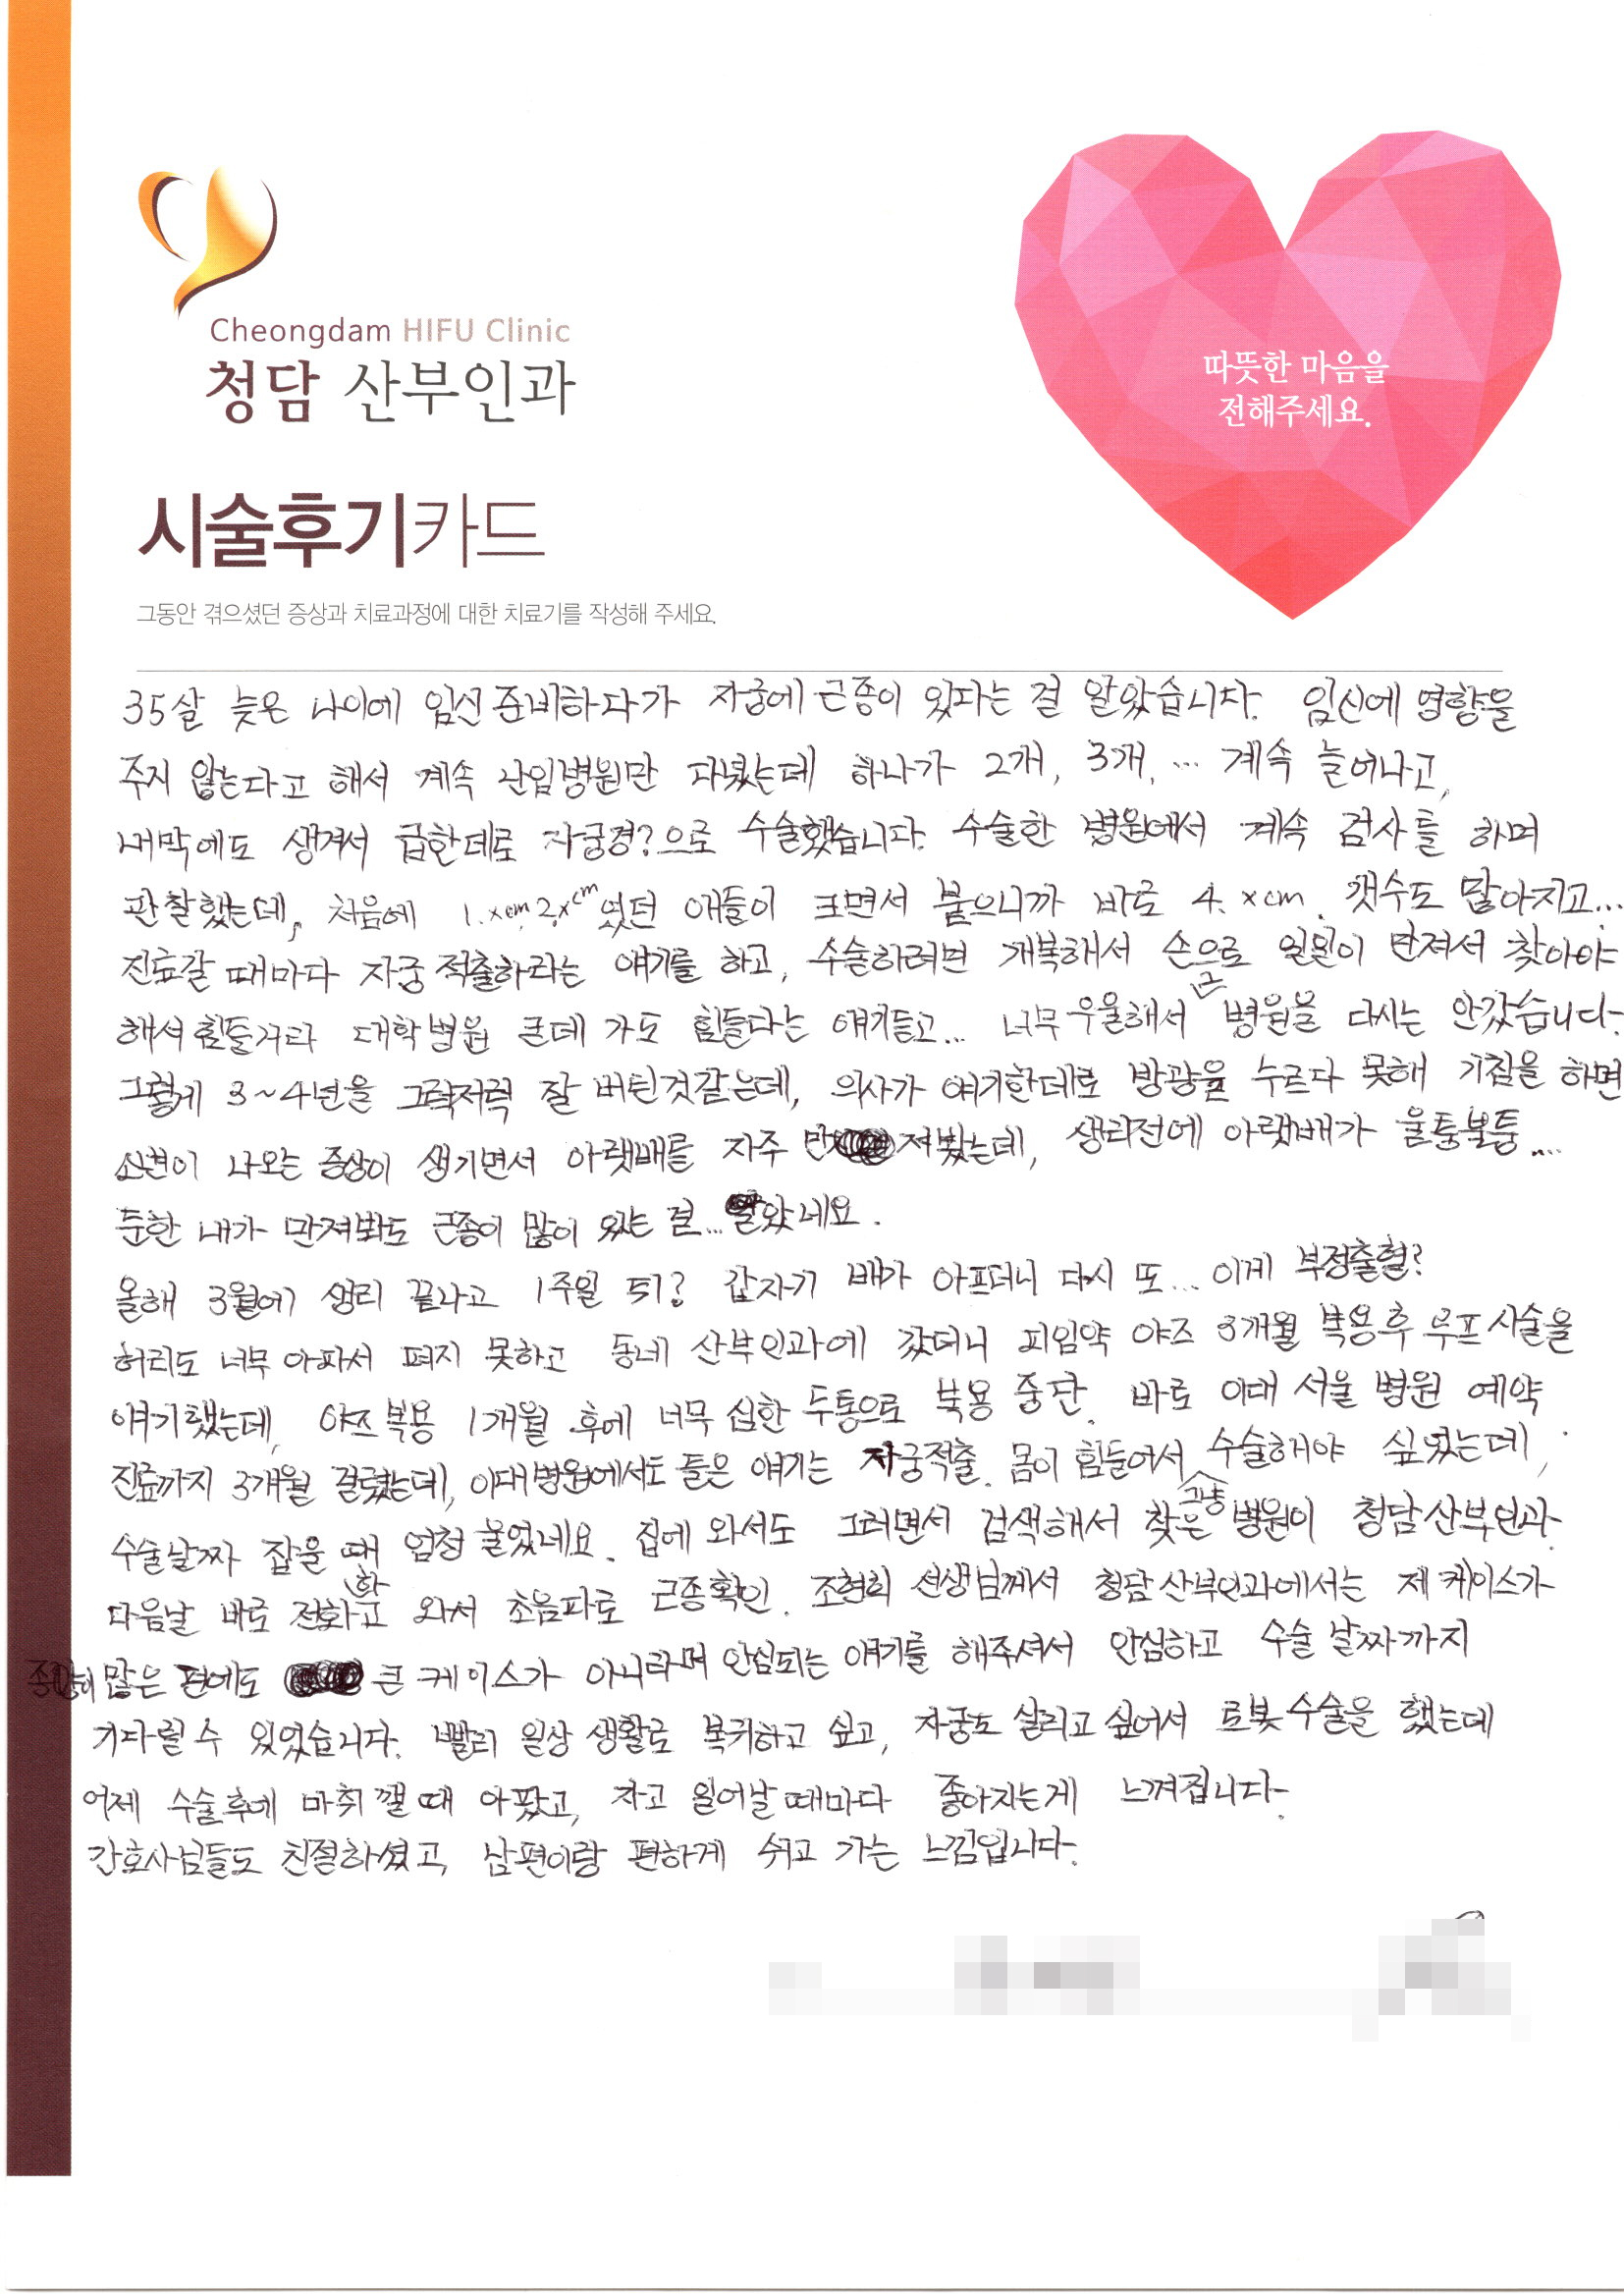 Cheongdam HIFU Clinic
청담 산부인과
따뜻한 마음을
전해주세요.
시술후기카드
그동안 겪으셨던 증상과 치료과정에 대한 치료기를 작성해 주세요.
35살 늦은 나이에 임신준비하다가 자궁에 근종이 있다는 걸 알았습니다. 임신에 영향을
주지 않는다고 해서 계속 난임병원만 다녔는데 하나가 2개, 3개, ... 계속 늘어나고,
내막에도 생겨서 급한데로 자궁경?으로 수술했습니다. 수술한 병원에서 계속 검사를 하며
관찰했는데, 처음에 1.xcm, 2.xcm였던 애들이 크면서 붙으니까 바로 4.xcm. 갯수도 많아지고...
진료갈 때마다 자궁 적출하라는 얘기를 하고, 수술하려면 개복해서 손으로 일일이 만져서 찾아야
해서 힘들거라 대학병원 큰데 가도 힘들다는 얘기듣고... 너무 우울해서 큰 병원을 다시는 안갔습니다.
그렇게 3~4년을 그럭저럭 잘 버틴것같은데, 의사가 얘기한데로 방광을 누르다 못해 기침을 하면
소변이 나오는 증상이 생기면서 아랫배를 자주 만져봤는데, 생리전에 아랫배가 울퉁불퉁....
둔한 내가 만져봐도 근종이 많이 있는 걸... 알았네요.
올해 3월에 생리 끝나고 1주일 뒤? 갑자기 배가 아프더니 다시 또... 이게 부정출혈?
허리도 너무 아파서 펴지 못하고 동네 산부인과에 갔더니 피임약 야즈 3개월 복용후 루프시술을
얘기했는데, 야즈복용 1개월 후에 너무 심한 두통으로 복용 중단. 바로 이대 서울 병원 예약
진료까지 3개월 걸렸는데, 이대병원에서도 들은 얘기는 자궁적출. 몸이 힘들어서 그냥 수술해야 싶었는데,
수술날짜 잡을 때 엄청 울었네요. 집에 와서도 그러면서 검색해서 찾은 병원이 청담산부인과.
다음날 바로 전화하고 와서 초음파로 근종확인. 조현희 선생님께서 청담산부인과에서는 제 케이스가
많은 편에도 큰 케이스가 아니라며 안심되는 얘기를 해주셔서 안심하고 수술 날짜까지
기다릴 수 있었습니다. 빨리 일상 생활로 복귀하고 싶고, 자궁도 살리고 싶어서 로봇수술을 했는데
어제 수술후에 마취 깰 때 아팠고, 자고 일어날 때마다 좋아지는게 느껴집니다.
간호사님들도 친절하셨고, 남편이랑 편하게 쉬고 가는 느낌입니다.